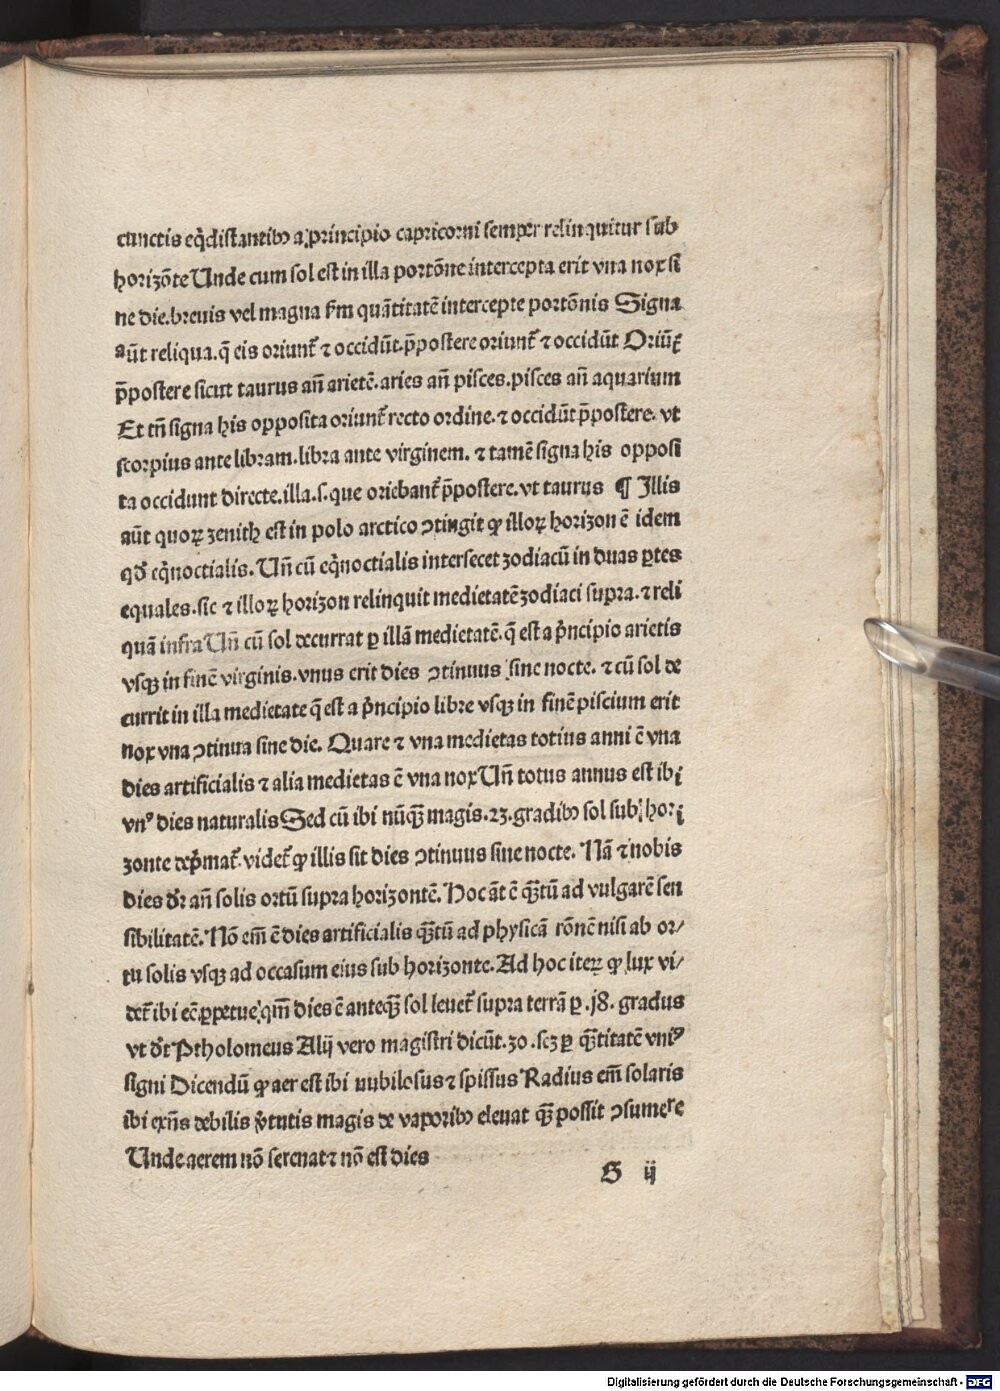 cunctis eq̄distantibꝰ a principio capricorni semper relinquitur sub
horizōte Unde cum sol est in illa portōne intercepta erit vna nox si
ne die.breuis vel magna ẜm quātitatē intercepte portōnis Signa
aūt reliqua.q̄ eis oriunt᷑ ⁊ occidūt.p̄postere oriunt᷑ ⁊ occidūt Oriūt᷑
p̄postere sicut taurus añ arietē.aries añ pisces.pisces añ aquarium
Et tñ signa his opposita oriunt᷑ recto ordine.⁊ occidūt p̄postere.vt
scorpius ante libram.libra ante virginem.⁊ tamē signa his opposi
ta occidunt directe.illa.s.que oriebant᷑ p̄postere.vt taurus ¶ Illis
aūt quoꝝ zenith est in polo arctico ↄtingit ꝙ illoꝝ horizon ē idem
qđ eq̄noctialis.Uñ cū eq̄noctialis intersecet zodiacū in duas ꝑtes
equales.sic ⁊ illoꝝ horizon relinquit medietatē zodiaci supra.⁊ reli
quā infra Uñ cū sol decurrat ꝑ illā medietatē.q̄ est a p̄ncipio arietis
vsqꝫ in finē virginis.vnus erit dies ↄtinuus sine nocte.⁊ cū sol de
currit in illa medietate q̄ est a p̄ncipio libre vsqꝫ in finē piscium erit
nox vna ↄtinua sine die. Quare ⁊ vna medietas totius anni ē vna
dies artificialis ⁊ alia medietas ē vna nox Uñ totus annus est ibi
vnꝰ dies naturalis Sed cū ibi nūqꝫ̄ magis.23.gradibꝰ sol sub hori
zonte dep̄mat᷑.videt᷑ ꝙ illis sit dies ↄtinuus sine nocte. Nā ⁊ nobis
dies dr̄ añ solis ortū supra horizontē. Hoc āt ē qꝫ̄tū ad vulgarē sen
sibilitatē.Nō em̄ ē dies artificialis qꝫ̄tū ad physicā rōnē nisi ab or/
tu solis vsqꝫ ad occasum eius sub horizonte.Ad hoc iteꝝ ꝙ lux vi/
det᷑ ibi eē ꝑpetue.qm̄ dies ē anteqꝫ̄ sol leuet᷑ supra terrā ꝑ .j8. gradus
vt dr̄t Ptholomeus Alij vero magistri dicūt.30.scꝫ ꝑ qꝫ̄titatē vniꝰ
signi Dicendū ꝙ aer est ibi nubilosus ⁊ spissus Radius em̄ solaris
ibi exñs debilis v̄tutis magis de vaporibꝰ eleuat qꝫ̄ possit ↄsumere
Unde aerem nō serenat ⁊ nō est dies
G ij
Digitalisierung gefördert durch die Deutsche Forschungsgemeinschaft - DFG